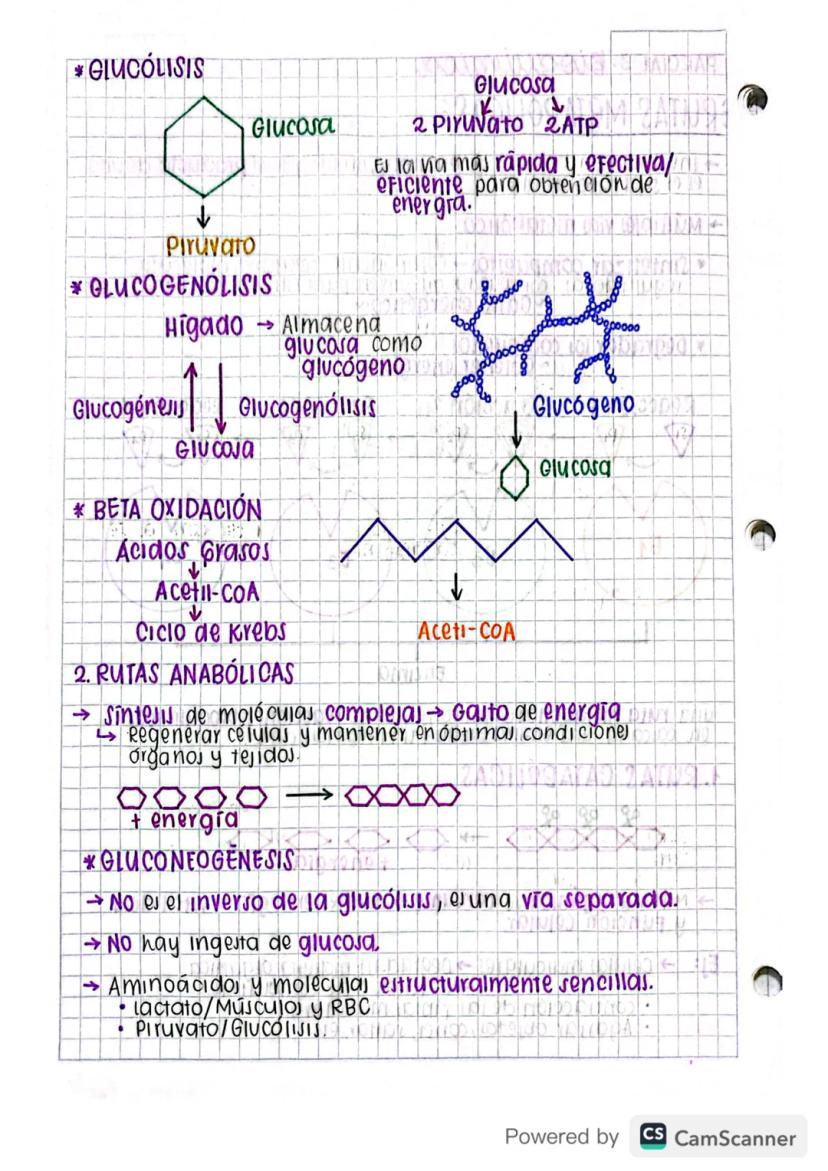 * GLUCÓLISIS
Glucosa
Piruvato
Glucosa
2 Piruvato 2ATP
Es la vía más rápida y efectiva/
eficiente para obtención de
energía.
* GLUCOGENÓLISIS
Hígado → Almacena
glucosa como
glucógeno
Glucogénesis
Glucogenólisis
Glucosa
Glucógeno
Glucosa
* BETA OXIDACIÓN
Ácidos Grasos
Acetil-CoA
Ciclo de Krebs
Aceti-CoA
2. RUTAS ANABÓLICAS
→ Síntesis de moléculas complejas → Gasto de energía
↳ Regenerar células y mantener en óptimas condiciones
órganos y tejidos.
+ energía
* GLUCONEOGÉNESIS
→ No es el inverso de la glucólisis, es una vía separada.
→ No hay ingesta de glucosa
→ Aminoácidos y moléculas estructuralmente sencillas.
• Lactato/Músculos y RBC
• Piruvato/Glucólisis.
Powered by CS CamScanner